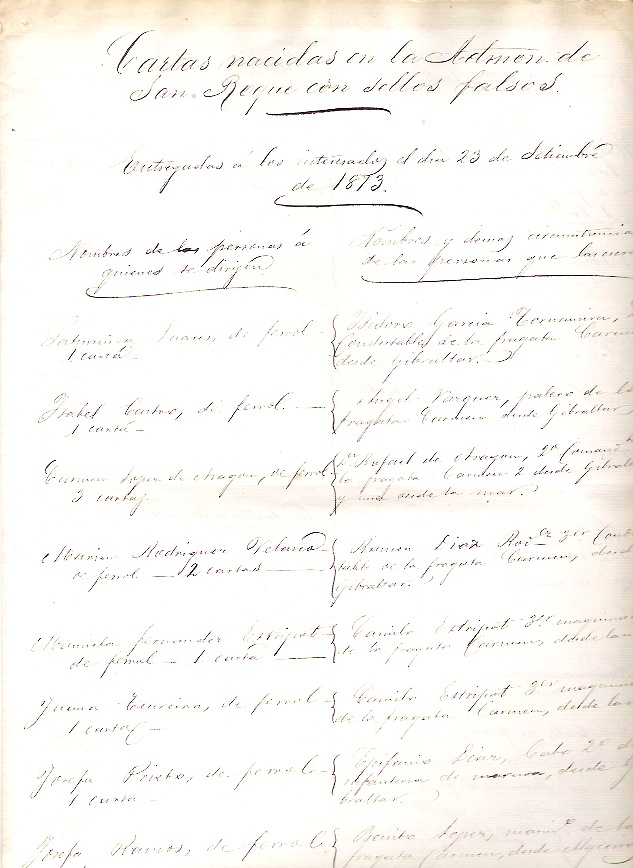 Cartas nacidas en la Admon. de
San Roque con sellos falsos.
Entregadas á los interesados el dia 23 de Setiembre
de 1873.
Nombres de las personas á
quienes se dirigen
Nombres y demas circunstancia
de las personas que las
Juana, de ferrol
1 carta
Isidoro Garcia
Condestable de la fragata Carmen
desde Gibraltar.
Isabel Castro, de ferrol.
1 carta
Angel Vazquez, de la
fragata Carmen desde Gibraltar
Carmen Lopez de Aragon, de ferrol
3 cartas.
Dn. Rafael de Aragon, 2o Comand
la fragata Carmen 2 desde Gibral
y una desde la mar.
Maria Rodriguez Velasco
de ferrol 12 cartas
Ramon Diaz 3er Condes
table de la fragata Carmen, desde
Gibraltar.
Manuela Fernandez Estripot
de ferrol 1 carta
Camilo Estripot 3er maquinis
de la fragata Carmen, desde la
Juana de ferrol
1 carta
Camilo Estripot 3er maquinis
de la fragata Carmen, desde la
Josefa Prieto, de ferrol
1 carta
Epifanio Diaz, Cabo 2o de
infanteria de marina, desde G
braltar.
Josefa Ramos, de ferrol,
Benito Lopez, de la
fragata Carmen, desde